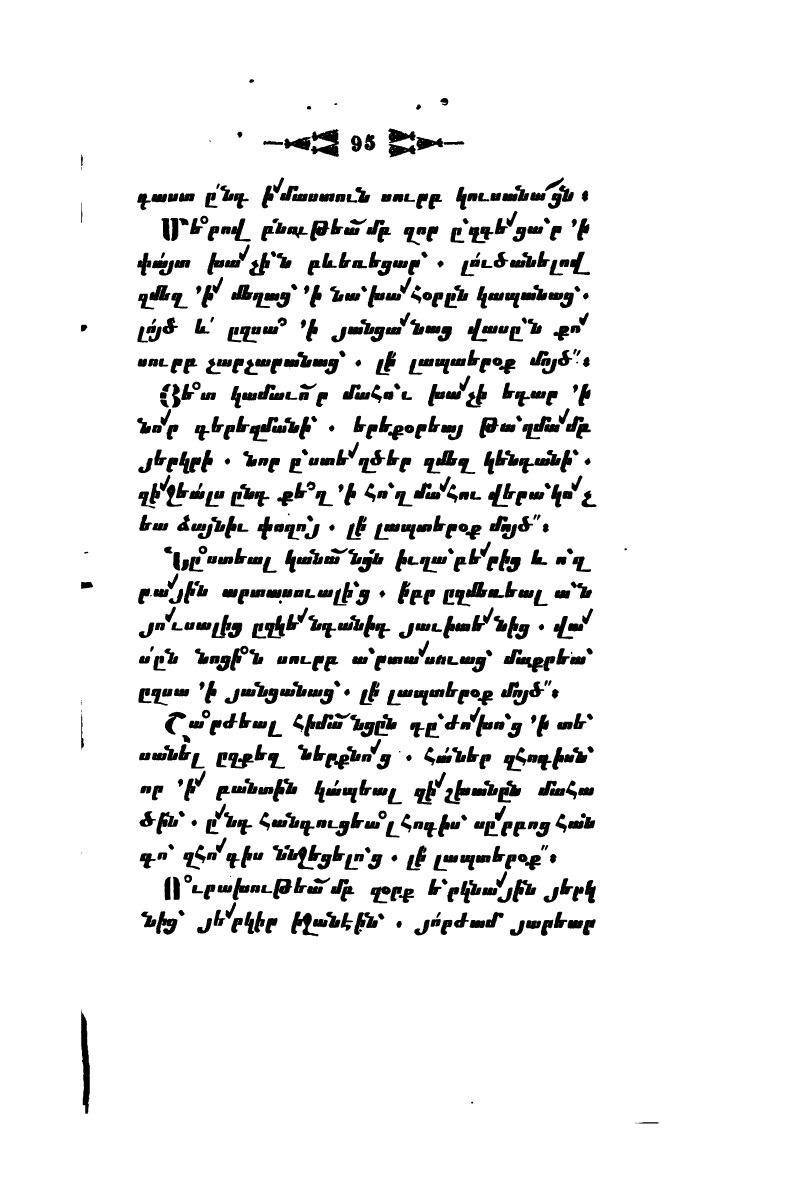 95
դաստ ընդ իմաստուն սուրբ կուսանացն :
Սիրով բնութեամբ զոր ըզգեցար ՛ի
փայտ խաչին բևեռեցար . լուծանելով
զմեզ ՛ի մեղաց ՛ի նախահօրըն կապանաց .
լոյծ և ըզսա ՛ի յանցանաց վասըն քո
սուրբ չարչարանաց . լի լապտերօք մոյծ :
Յետ կամաւոր մահու խաչի եդար ՛ի
նոր գերեզմանի . երեքօրեայ թաղմամբ
յերկրի . նոր ըստեղծեր զմեզ կենդանի .
զիջեալս ընդ քեզ ՛ի հող մահու վերակոչ
եա ձայնիւ փողոյ . լի լապտերօք մոյծ :
Նըստեալ կանանցն իւղաբերից և ող
բային արտասուալից . իբր ըզմեռեալ ան
յուսալից ըզկենդանիդ յաւիտենից . վա
սըն նոցին սուրբ արտասուաց մաքրեա
ըզսա ՛ի յանցանաց . լի լապտերօք մոյծ :
Շարժեալ հիմանցըն դըժոխոց ՛ի տե
սանել ըզքեզ ներքնոց . հաներ զհոգիսն
որ ՛ի բանտին կապեալ զիշխանըն մահա
ծին . ընդ հանգուցեալ հոգիս սըրբոց հան
գո զհոգիս ննջեցելոց . լի լապտերօք :
Ուրախութեամբ զօրք երկնային յերկ
նից յերկիր իջանէին . յորժամ յարեար